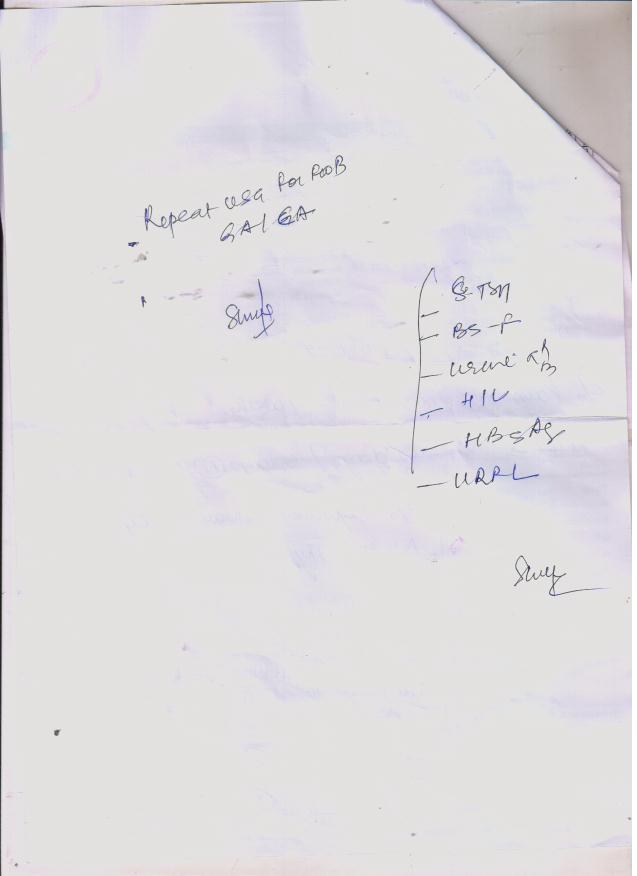 Repeat USG for POOB
GA/GA
S. TSH
BS-F
Urine R/M
HIV
HBsAg
VDRL